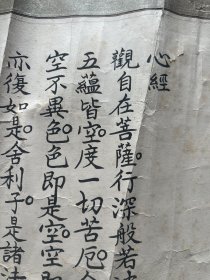 心經
觀自在菩薩。行深般若
五蘊皆空。度一切苦厄。
空不異色。色即是空。空即
亦復如是。舍利子。是諸法